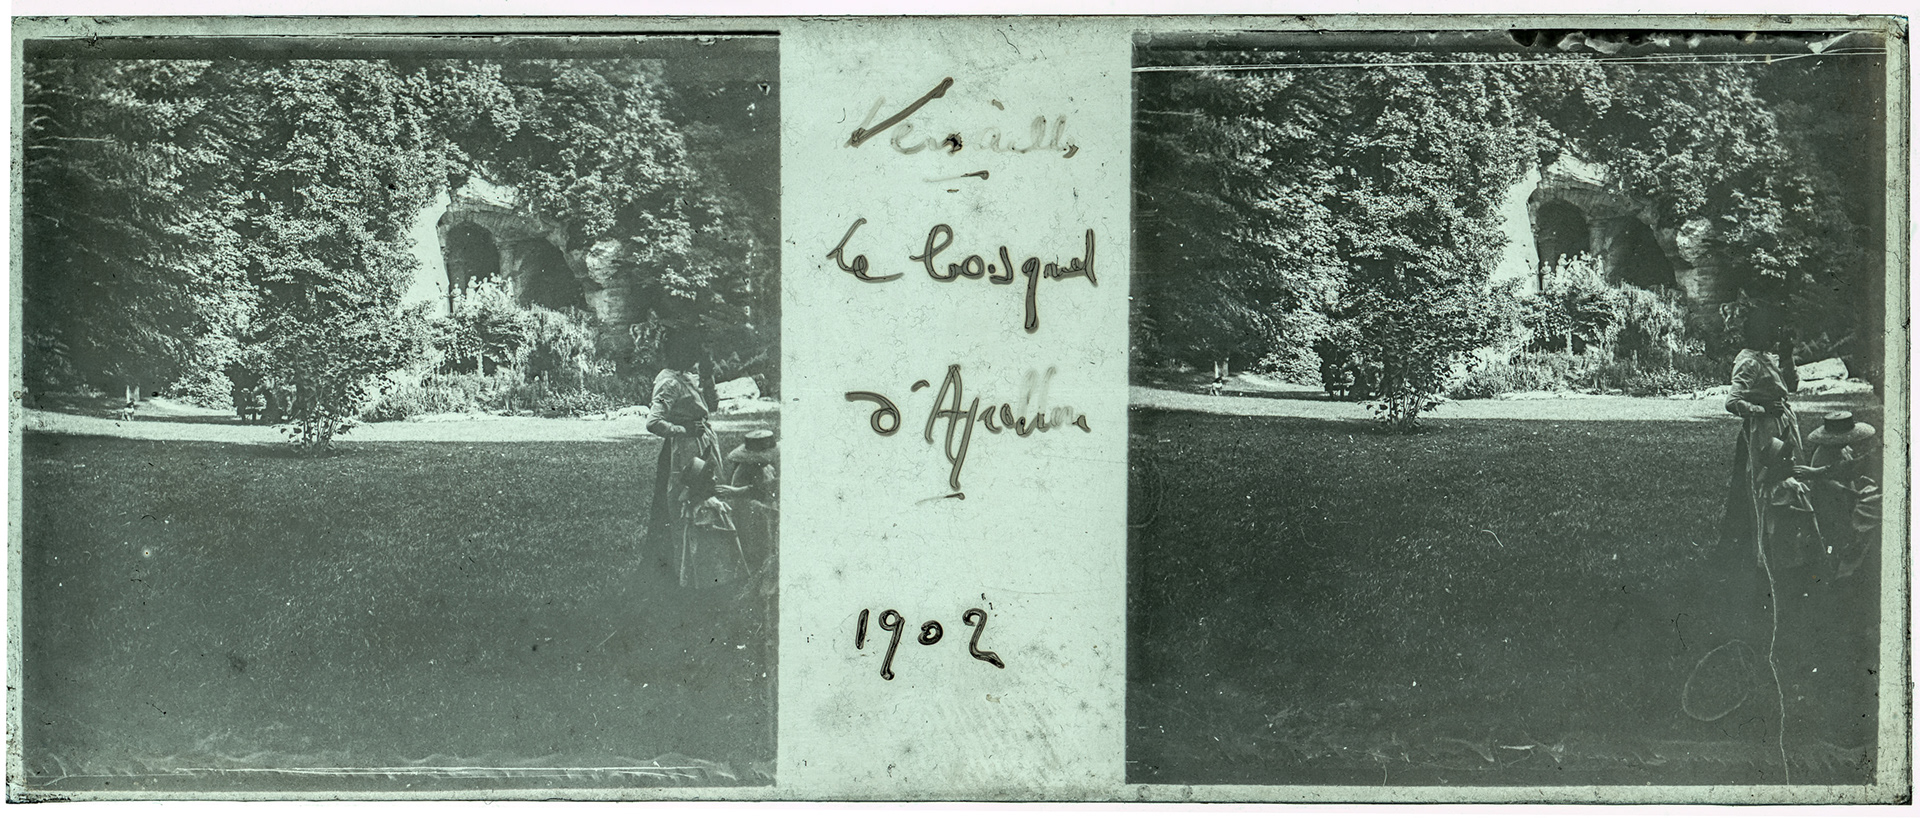 Versailles
Le bosquet
d'Apollon
1902